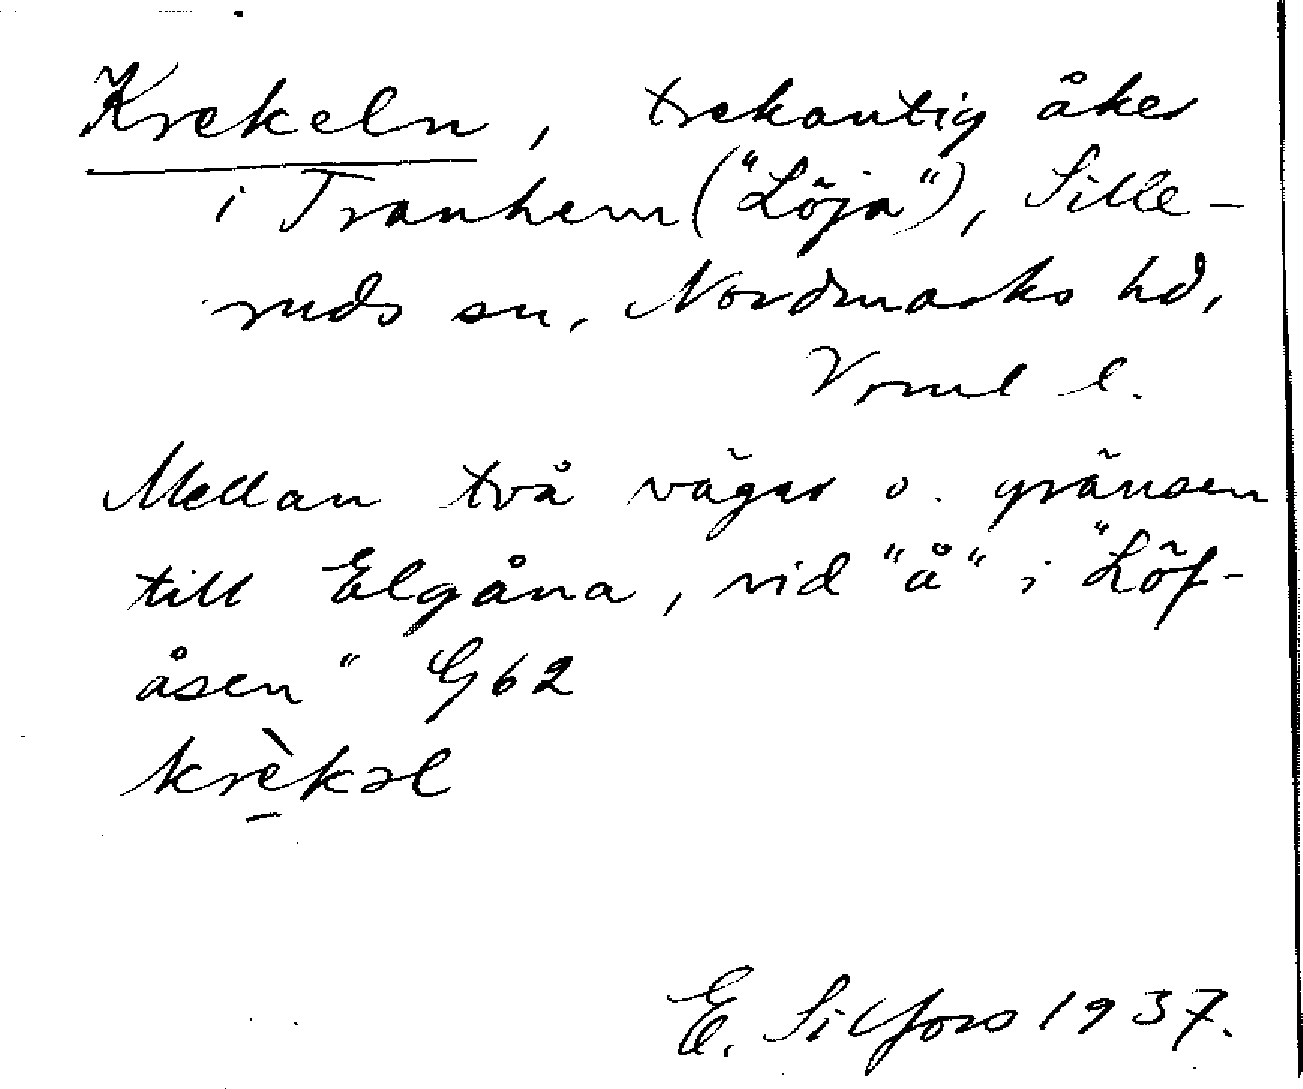 Krekeln, trekantig åker
i Tranhem ("Löja"), Sille-
ruds sn, Nordmarks hd,
Vrml l.
Mellan två vägar o. gränsen
till Elgåna, vid "å" i "Löf-
åsen" G62
krèkəl
E. Silfors 1937.